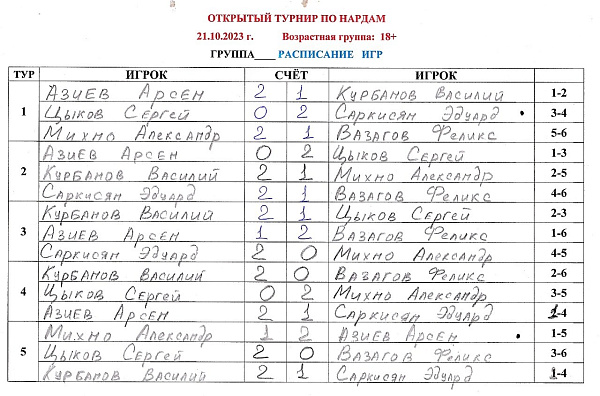 ОТКРЫТЫЙ ТУРНИР ПО НАРДАМ
21.10.2023 г. Возрастная группа: 18+
ГРУППА____ РАСПИСАНИЕ ИГР
ТУР ИГРОК СЧЁТ ИГРОК
1 АЗИЕВ АРСЕН 2 1 КУРБАНОВ ВАСИЛИЙ 1-2
ЦЫКОВ СЕРГЕЙ 0 2 САРКИСЯН ЭДУАРД 3-4
МИХНО АЛЕКСАНДР 2 1 ВАЗАГОВ ФЕЛИКС 5-6
2 АЗИЕВ АРСЕН 0 2 ЦЫКОВ СЕРГЕЙ 1-3
КУРБАНОВ ВАСИЛИЙ 2 1 МИХНО АЛЕКСАНДР 2-5
САРКИСЯН ЭДУАРД 2 1 ВАЗАГОВ ФЕЛИКС 4-6
3 КУРБАНОВ ВАСИЛИЙ 2 1 ЦЫКОВ СЕРГЕЙ 2-3
АЗИЕВ АРСЕН 1 2 ВАЗАГОВ ФЕЛИКС 1-6
САРКИСЯН ЭДУАРД 2 0 МИХНО АЛЕКСАНДР 4-5
4 КУРБАНОВ ВАСИЛИЙ 2 0 ВАЗАГОВ ФЕЛИКС 2-6
ЦЫКОВ СЕРГЕЙ 0 2 МИХНО АЛЕКСАНДР 3-5
АЗИЕВ АРСЕН 2 1 САРКИСЯН ЭДУАРД 1-4
5 МИХНО АЛЕКСАНДР 1 2 АЗИЕВ АРСЕН 1-5
ЦЫКОВ СЕРГЕЙ 2 0 ВАЗАГОВ ФЕЛИКС 3-6
КУРБАНОВ ВАСИЛИЙ 2 1 САРКИСЯН ЭДУАРД 1-4